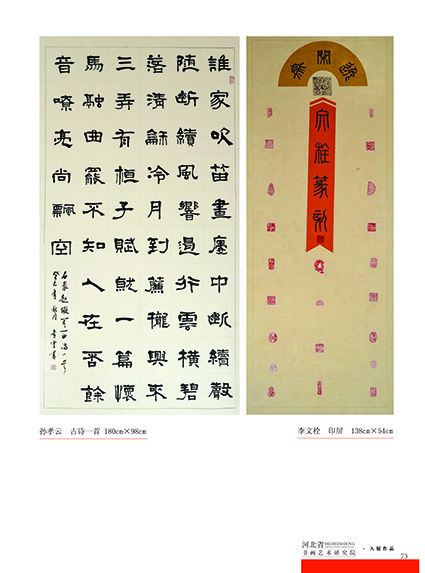 誰家吹笛畫廔中斷續聲
随断續風響遏行雲橫碧
落清龢冷月到簾櫳興來
三弄有桓子賦就一篇懷
馬融曲罷不知人在否餘
音嘹亮尚飄空
文栓篆刻
孙孝云 古诗一首 180cm×98cm
李文栓 印屏 138cm×54cm
河北省HEBEISHENG
书画艺术研究院
·入展作品
73